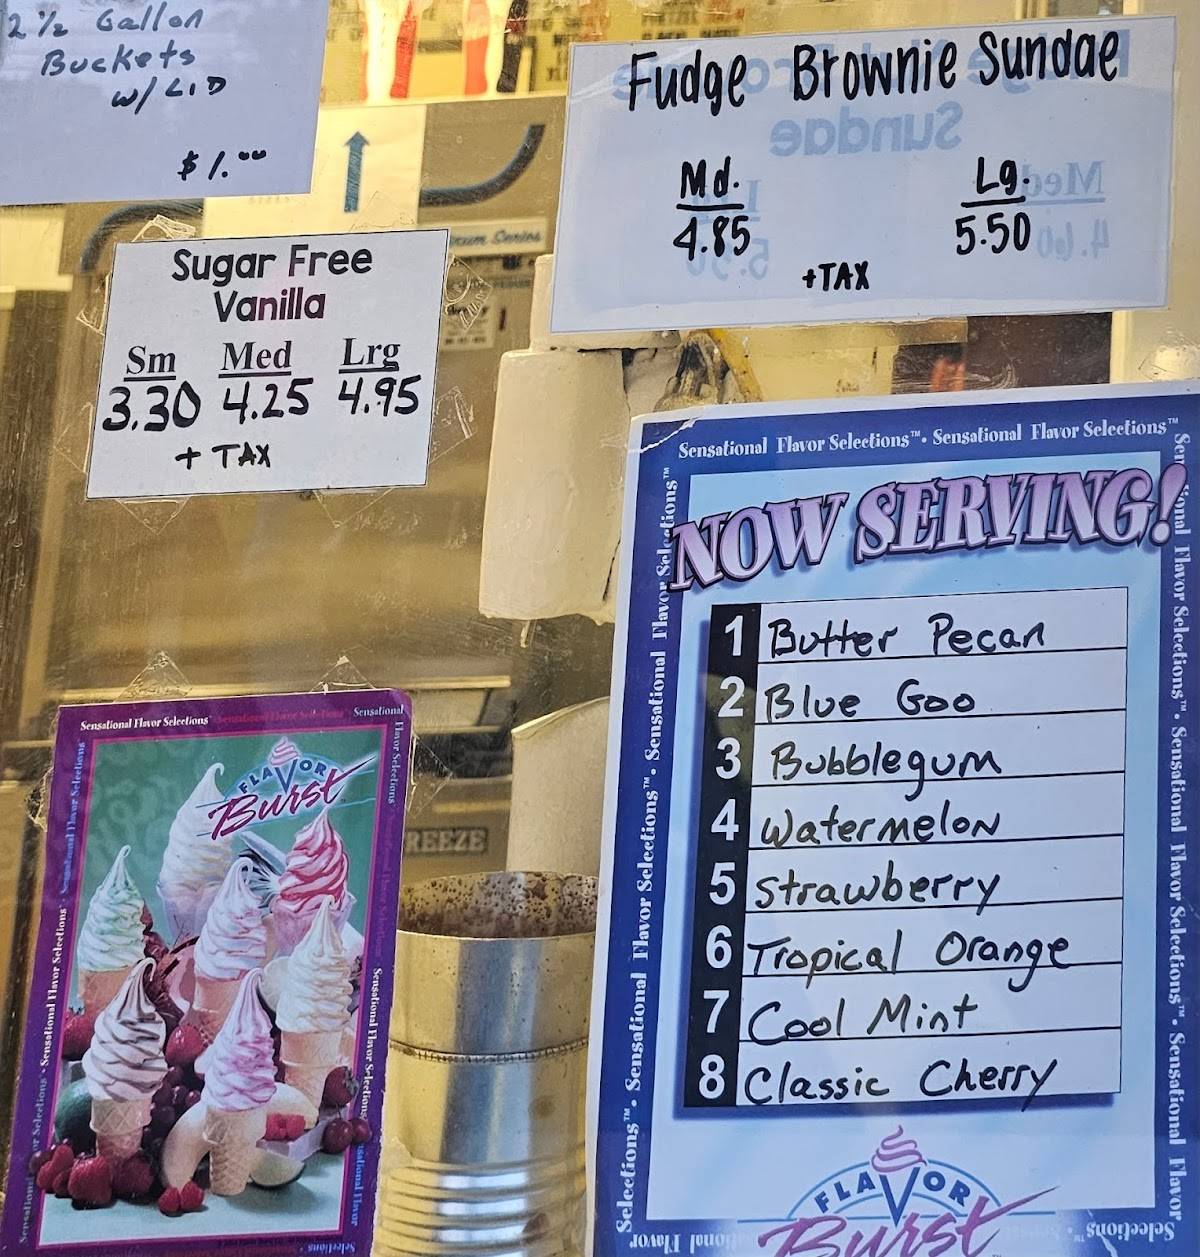 2 1/2 Gallon
Buckets
w/ LID
$1.00
Fudge Brownie Sundae
Md. Lg.
4.85 5.50
+TAX
Sugar Free
Vanilla
Sm Med Lrg
3.30 4.25 4.95
+ TAX
Sensational Flavor Selections™ • Sensational Flavor Selections™
NOW SERVING!
1 Butter Pecan
2 Blue Goo
3 Bubblegum
4 Watermelon
5 Strawberry
6 Tropical Orange
7 Cool Mint
8 Classic Cherry
FLAVOR
Burst
Sensational Flavor Selections
FLAVOR
Burst™
REEZE